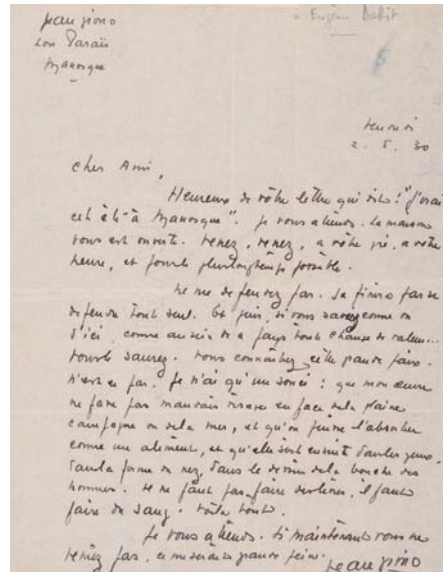 Jean Giono
Lou Paraïs
Manosque
à Eugène Dabit
5
vendredi
2. 5. 30
Cher Ami,
Heureux de votre lettre qui dit : "J'irai
cet été à Manosque". Je vous attends. La maison
vous est ouverte. Venez, venez, à votre gré, à votre
heure, et pour le plus longtemps possible.
Ne me défendez pas. Je finirai par me
défendre tout seul. Et puis, si vous saviez comme on
d'ici, comme au sein de ce pays tout change de valeur...
vous le saurez. Vous connaîtrez cette grande paix.
N'est-ce pas. Je n'ai qu'un souci : que mon œuvre
ne fasse pas mauvais visage en face de la plaine
campagne ou de la mer, et qu'on puisse l'absorber
comme un aliment, et qu'elle soit ensuite dans les yeux,
dans la forme du nez, dans le dessin de la bouche des
hommes. Il ne faut pas faire des livres, il faut
faire du sang. Voilà tout.
Je vous attends. Si maintenant vous ne
veniez pas, ce me serait grande peine.
Jean Giono